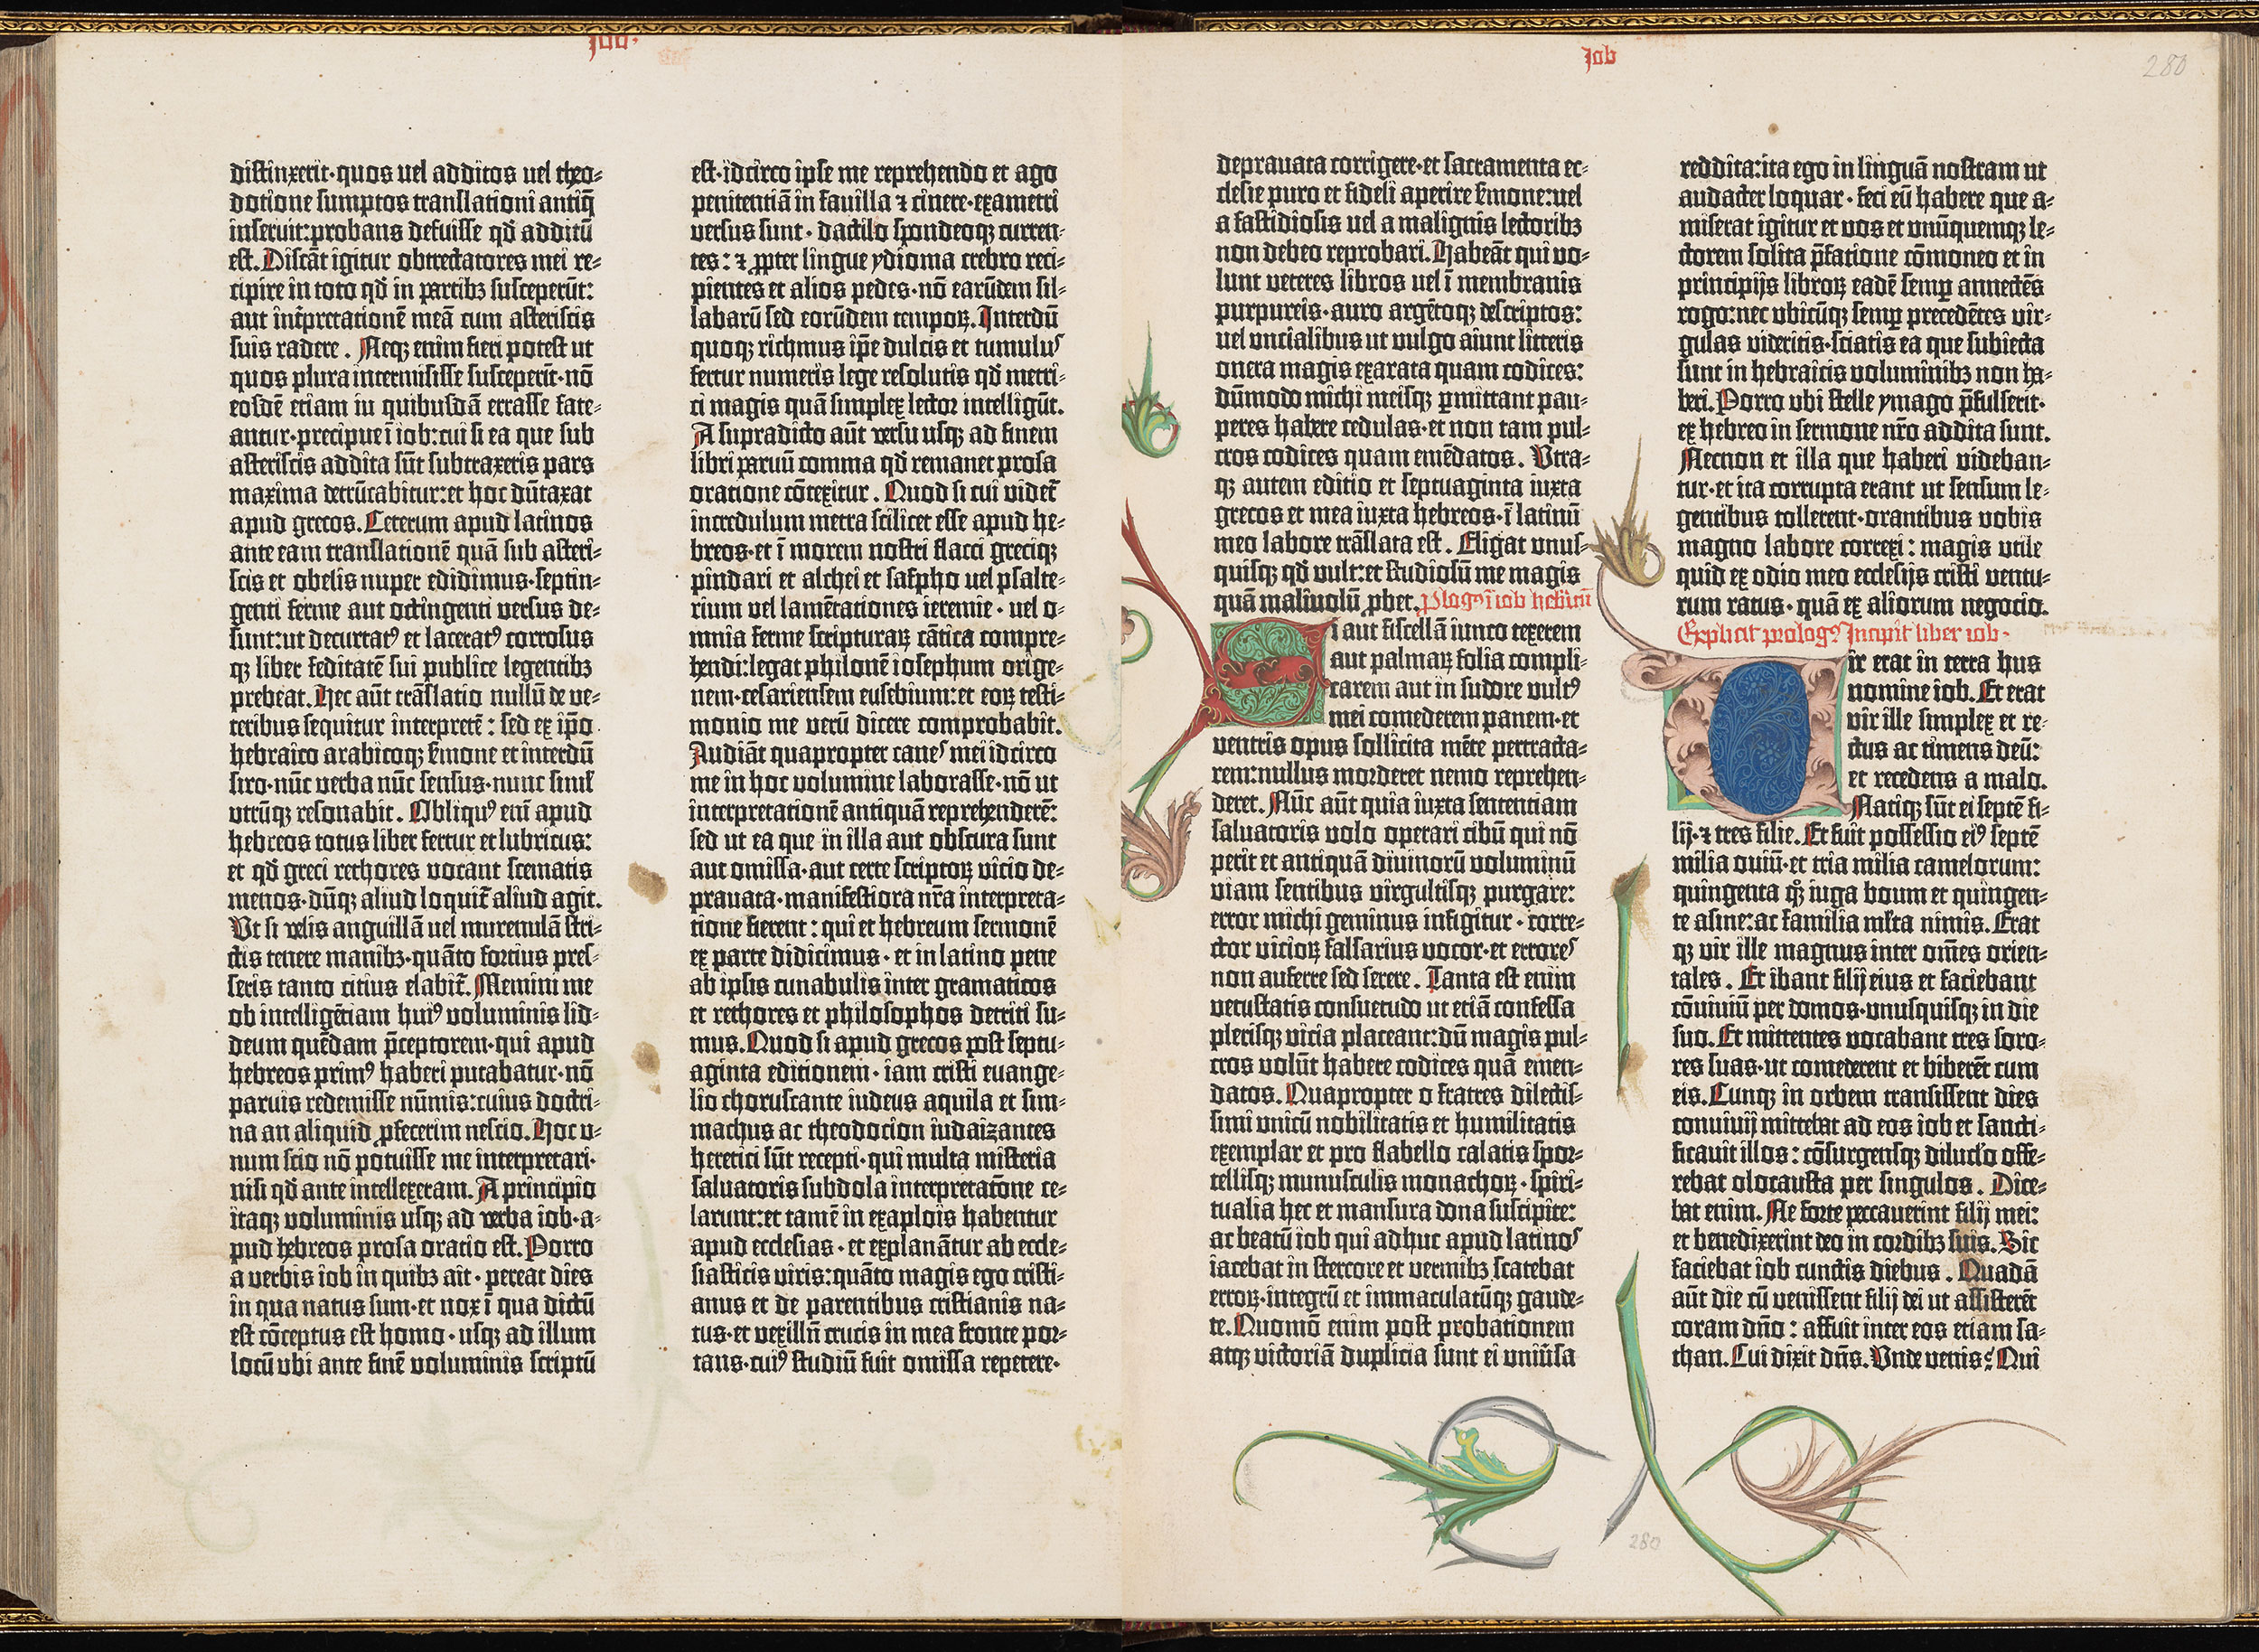 Job·
distinxerit·quos uel additos uel theo-
dotione sumptos translationi antiq̄
inseruit:probans defuisse qd̄ additū
est. Discāt igitur obtrectatores mei re-
cipere in toto qd̄ in partibꝫ susceperūt:
aut int̄pretationē meā cum asteriscis
suis radere. Neqꝫ enim fieri potest ut
quos plura intermisisse susceperīt·nō
eosdē etiam in quibusdā errasse fate-
antur·precipue ī iob:cui si ea que sub
asteriscis addita sūt subtraxeris pars
maxima detrūcabitur:et hoc dūtaxat
apud grecos. Ceterum apud latinos
ante eam translationē quā sub asteri-
scis et obelis nuper edidimus·septin-
genti ferme aut octingenti versus de-
sunt:ut decurtatꝰ et laceratꝰ corrosus
qꝫ liber feditatē sui publice legentibꝫ
prebeat. Hec aūt trāslatio nullū de ve-
teribus sequitur interpretē: sed ex ip̄o
hebraico arabicoqꝫ s̄mone et interdū
siro·nūc verba nūc sensus·nunc simł
utrūqꝫ resonabit. Obliquꝰ eni᷑ apud
hebreos totus liber fertur et lubricus:
et qd̄ greci rethores vocant scematis
menos·dūqꝫ aliud loquit᷑ aliud agit.
Ut si velis anguillā uel murenulā stri-
ctis tenere manibꝫ·quāto fortius pres-
seris tanto citius elabit᷑. Memini me
ob intelligētiam huiꝰ voluminis lid-
deum quēdam p̄ceptorem·qui apud
hebreos primꝰ haberi putabatur·nō
paruis redemisse nūmis:cuius doctri-
na an aliquid ꝓfecerim nescio. Hoc v-
num scio nō potuisse me interpretari·
nisi qd̄ ante intellexeram. A principio
itaqꝫ voluminis usqꝫ ad verba iob·a-
pud hebreos prosa oratio est. Porro
a verbis iob in quibꝫ ait·pereat dies
in qua natus sum·et nox ī qua dictū
est cōceptus est homo·usqꝫ ad illum
locū ubi ante finē voluminis scriptū
est·idcirco ipse me reprehendo et ago
penitentiā in fauilla ⁊ cinere·exametri
versus sunt·dactilo spondeoqꝫ curren-
tes: ⁊ ꝓpter lingue ydioma crebro reci-
pientes et alios pedes·nō earūdem sil-
labarū sed eorūdem tempoꝝ. Interdū
quoqꝫ richmus ip̄e dulcis et tumulus
fertur numeris lege resolutis qd̄ metri-
ci magis quā simplex lector intelligūt.
A supradicto aūt versu usqꝫ ad finem
libri paruū comma qd̄ remanet prosa
oratione cōtexitur. Quod si cui videt᷑
incredulum metra scilicet esse apud he-
breos·et ī morem nostri flacci greciqꝫ
pindari et alchei et sapho uel psalte-
rium vel lamētationes ieremie·uel o-
mnia ferme scripturaꝝ cātica compre-
hendi:legat philonē iosephum orige-
nem·cesariensem eusebium:et eoꝝ testi-
monio me verū dicere comprobabit.
Audiāt quapropter canes mei idcirco
me in hoc volumine laborasse·nō ut
interpretationē antiquā reprehenderē:
sed ut ea que in illa aut obscura sunt
aut omissa·aut certe scriptoꝝ vicio de-
prauata·manifestiora nr̄a interpreta-
tione fierent: qui et hebreum sermonē
ex parte didicimus·et in latino pene
ab ipsis cunabulis inter gramaticos
et rethores et philosophos detriti su-
mus. Quod si apud grecos post septu-
aginta editionem·iam cristi euange-
lio choruscante iudeus aquila et sim-
machus ac theodocion iudaizantes
heretici sūt recepti·qui multa misteria
saluatoris subdola interpretatōne ce-
larunt:et tamē in exaplois habentur
apud ecclesias·et explanātur ab eccle-
siasticis viris:quāto magis ego cristi-
anus et de parentibus cristianis na-
tus·et vexillū crucis in mea fronte por-
tans·cuiꝰ studiū fuit omissa repetere·
Job
280
deprauata corrigere·et sacramenta ec-
clesie puro et fideli aperire s̄mone:uel
a fastidiosis uel a malignis lectoribꝫ
non debeo reprobari. Habeāt qui vo-
lunt veteres libros uel ī membranis
purpureis·auro argētoqꝫ descriptos:
uel uncialibus ut vulgo aiunt litteris
onera magis exarata quam codices:
dūmodo michi meisqꝫ ꝑmittant pau-
peres habere cedulas·et non tam pul-
cros codices quam emēdatos. Utra-
qꝫ autem editio et septuaginta iuxta
grecos et mea iuxta hebreos·ī latinū
meo labore trāslata est. Eligat unus-
quisqꝫ qd̄ vult:et studiosū me magis
quā maliuolū ꝓbet. Plogꝰ ī iob
Si aut fiscellā iunco texerem
aut palmaꝝ folia compli-
carem aut in sudore vultꝰ
mei comederem panem·et
ventris opus sollicita mēte pertracta-
rem:nullus morderet nemo reprehen-
deret. Nūc aūt quia iuxta sententiam
saluatoris volo operari cibū qui nō
perit et antiquā diuinorū voluminū
viam sentibus virgultisqꝫ purgare:
error michi geminus infigitur·corre-
ctor vicioꝝ falsarius vocor·et errores
non auferre sed serere. Tanta est enim
vetustatis consuetudo ut etiā confessa
plerisqꝫ vicia placeant:dū magis pul-
cros volūt habere codices quā emen-
datos. Quapropter o fratres dilectis-
simi unicū nobilitatis et humilitatis
exemplar et pro flabello calatis spor-
tellisqꝫ munusculis monachoꝝ·spiri-
tualia hec et mansura dona suscipite:
ac beatū iob qui adhuc apud latinos
iacebat in stercore et vermibꝫ scatebat
erroꝝ·integrū et immaculatūqꝫ gaude-
te. Quomō enim post probationem
atqꝫ victoriā duplicia sunt ei uniūsa
reddita:ita ego in linguā nostram ut
audacter loquar·feci eū habere que a-
miserat igitur et vos et unūquemqꝫ le-
ctorem solita p̄fatione cōmoneo et in
principijs libroꝝ eadē semꝑ annectēs
rogo:nec ubicūqꝫ semꝑ precedētes vir-
gulas videritis·sciatis ea que subiecta
sunt in hebraicis voluminibꝫ non ha-
beri. Porro ubi stelle ymago p̄fulserit·
ex hebreo in sermone nr̄o addita sunt.
Necnon et illa que haberi videban-
tur·et ita corrupta erant ut sensum le-
gentibus tollerent·orantibus vobis
magno labore correxi: magis utile
quid ex odio meo ecclesijs cristi ventu-
rum ratus·quā ex aliorum negocio.
Explicit prologꝰ Incipit liber iob·
Vir erat in terra hus
nomine iob. Et erat
vir ille simplex et re-
ctus ac timens deū:
et recedens a malo.
Natiqꝫ sūt ei septē fi-
lij·⁊ tres filie. Et fuit possessio eiꝰ septē
milia ouiū·et tria milia camelorum:
quingenta qꝫ iuga boum et quingen-
te asine:ac familia ml̄ta nimis. Erat
qꝫ vir ille magnus inter om̄es orien-
tales. Et ibant filij eius et faciebant
cōuiuiū per domos·unusquisqꝫ in die
suo. Et mittentes vocabant tres soro-
res suas·ut comederent et biberēt cum
eis. Cunqꝫ in orbem transissent dies
conuiuij mittebat ad eos iob et sancti-
ficauit illos: cōsurgensqꝫ dilucło offe-
rebat olocausta per singulos. Dice-
bat enim. Ne forte peccauerint filij mei:
et benedixerint deo in cordibꝫ suis. Sic
faciebat iob cunctis diebus. Quadā
aūt die cū venissent filij dei ut assisterēt
coram dn̄o: affuit inter eos etiam sa-
than. Cui dixit dn̄s. Unde venis? Qui
280